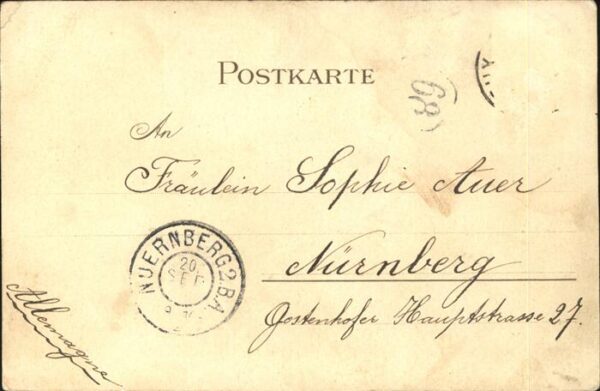 POSTKARTE
69
An
Fräulein Sophie Auer
Nürnberg
Gostenhofer Hauptstrasse 27.
NUERNBERG 2.B.A.
20
SEP
Allemagne